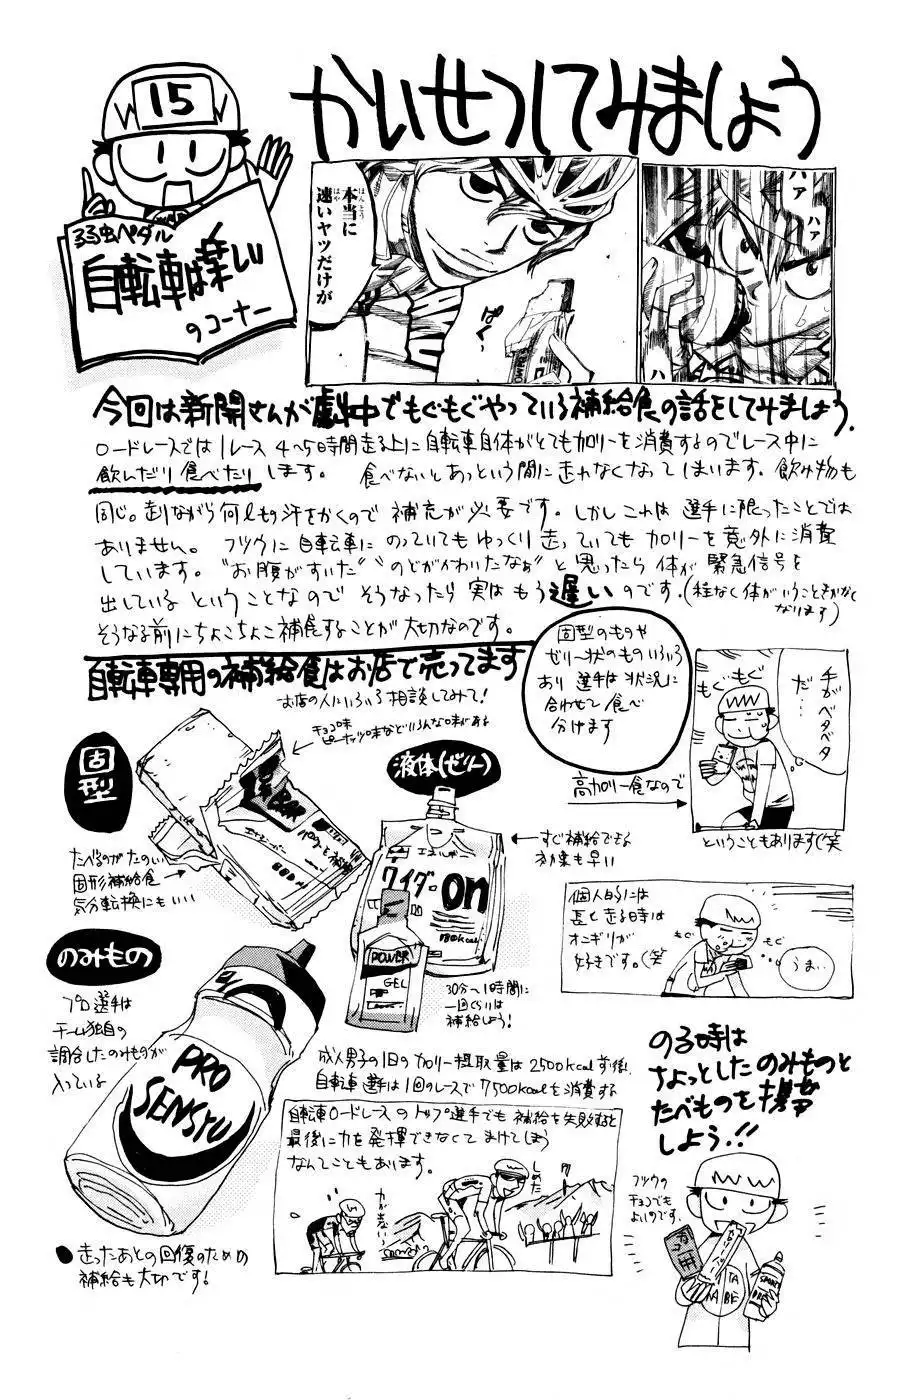 15
弱虫ペダル
自転車は楽しい
のコーナー
かいせつしてみましょう
本当に
ほんとう
速いヤツだけが
はや
ぱく
ハァ
ハァ
ハァ
今回は新開さんが劇中でもぐもぐやっている補給食の話をしてみましょう.
ロードレースでは1レース 4〜5時間走る上に自転車自体がとてもカロリーを消費するのでレース中に
飲んだり食べたりします。 食べないとあっという間に走れなくなってしまいます。飲み物も
同じ。走りながら何ℓも汗をかくので 補充が必要です。しかしこれは 選手に限ったことでは
ありません。 フツウに自転車に のっていても ゆっくり走っていても カロリーを意外に消費
しています。“お腹がすいた”“のどがかわいたなぁ”と思ったら体が緊急信号を
出している ということなので そうなったら実はもう遅いのです。(程なく体がいうことをきかなく
なります)
そうなる前にちょこちょこ補食することが大切なのです。
自転車専用の補給食はお店で売ってます
お店の人にいろいろ相談してみて!
固型のものや
ゼリー状のものいろいろ
あり 選手は状況に
合わせて食べ
分けます
固型
チョコ味
ピーナッツ味などいろんな味がある
たべるのがたのしい
固形補給食
気分転換にもいい
BAR
液体(ゼリー)
エネルギー
ワイダーon
180kcal
POWER
GEL
すぐ補給できる
効果も早い
30分〜1時間に
一回くらいは
補給しよう!
高カロリー食なので
もぐもぐ
手がベタベタ
だ…
ということもあります(笑
個人的には
長く走る時は
オニギリが
好きです。(笑
もぐ
もぐ
うま…
のみもの
プロ選手は
チーム独自の
調合したのみものが
入っている
PRO
SENSYU
成人男子の1日のカロリー摂取量は2500kcalずつ
自転車選手は1回のレースで7500kcalを消費する
自転車ロードレースのトップ選手でも補給を失敗すると
最後に力を発揮できなくてまけてしまう
なんてこともあります。
力が出ない
しめた
のる時は
ちょっとしたのみものと
たべものを携帯
しよう.!!
フツウの
チョコでも
よいのです.
●走ったあとの回復のための
補給も大切です!